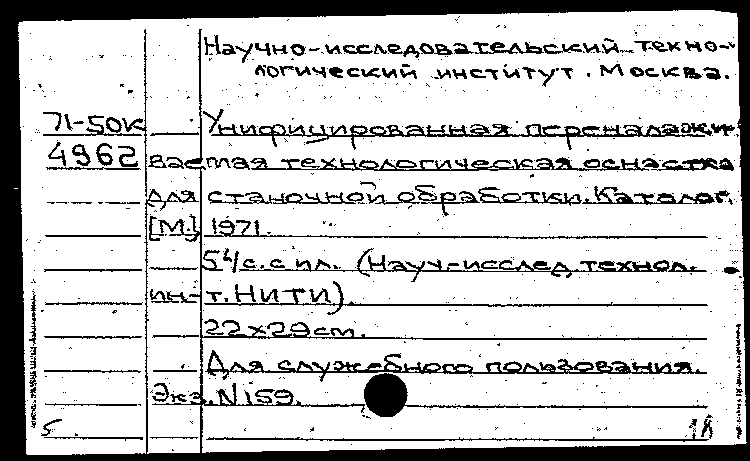 Научно-исследовательский техно-
логический институт. Москва.
71-50к Унифицированная переналажи-
4962 ваемая технологическая оснастка
для станочной обработки. Каталог.
[М.] 1971.
54 с. с ил. (Науч-исслед. технол.
ин-т. НИТИ).
22х29 см.
Для служебного пользования.
Экз. N 159.
5 18